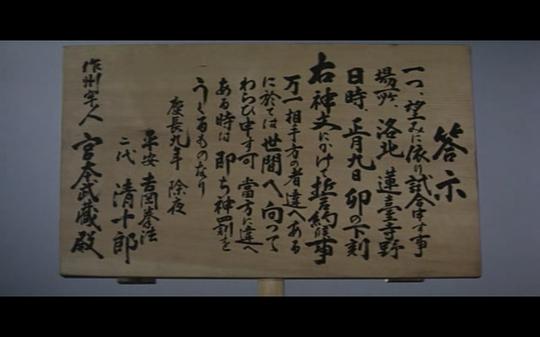 答示
一つ、望みに依り試合申す事
場所、洛北 蓮臺寺野
日時、正月九日 卯の下刻
右神文にかけて誓約候事
万一相手方の者違へある
に於ては世間へ向って
わらひ申す可 當方に違へ
ある時は 即ち神罰を
うくるものなり
慶長九年 除夜
平安 吉岡拳法
二代 清十郎
作州牢人 宮本武蔵殿